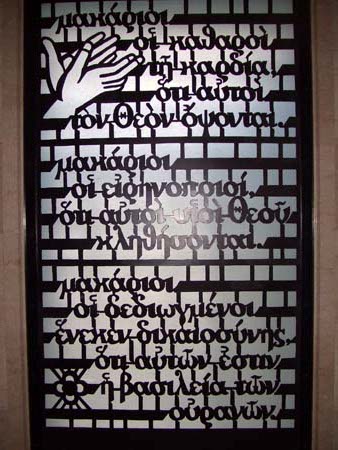 μακάριοι
οἱ καθαροὶ
τῇ καρδίᾳ,
ὅτι αὐτοὶ
τὸν Θεὸν ὄψονται.
μακάριοι
οἱ εἰρηνοποιοί,
ὅτι αὐτοὶ υἱοὶ Θεοῦ
κληθήσονται.
μακάριοι
οἱ δεδιωγμένοι
ἕνεκεν δικαιοσύνης,
ὅτι αὐτῶν ἐστιν
ἡ βασιλεία τῶν
οὐρανῶν.